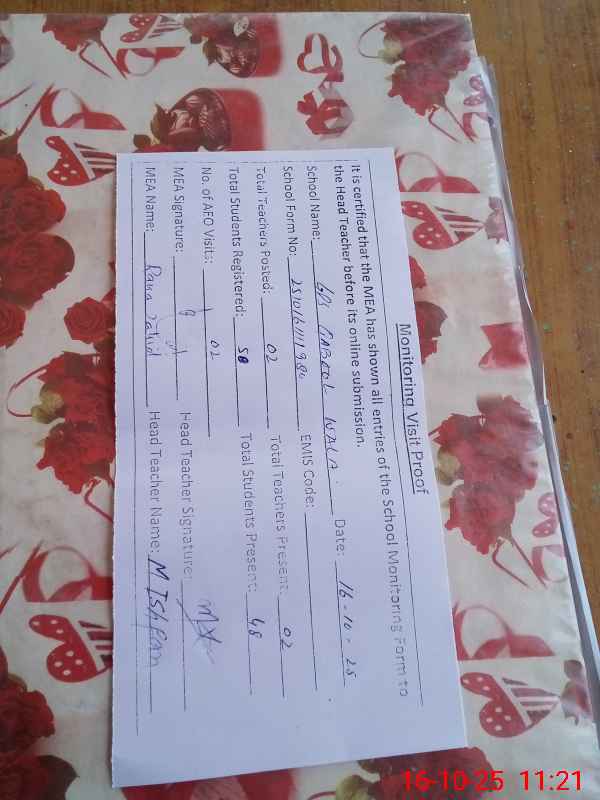 Monitoring Visit Proof
It is certified that the MEA has shown all entries of the School Monitoring Form to
the Head Teacher before its online submission.
School Name: GPS WALA Date: 16-10-25
School Form No: EMIS Code:
Total Teachers Posted: 02 Total Teachers Present: 02
Total Students Registered: 58 Total Students Present: 48
No. of AEO Visits: 02
MEA Signature: Head Teacher Signature:
MEA Name: Rana Head Teacher Name: M
16-10-25 11:21